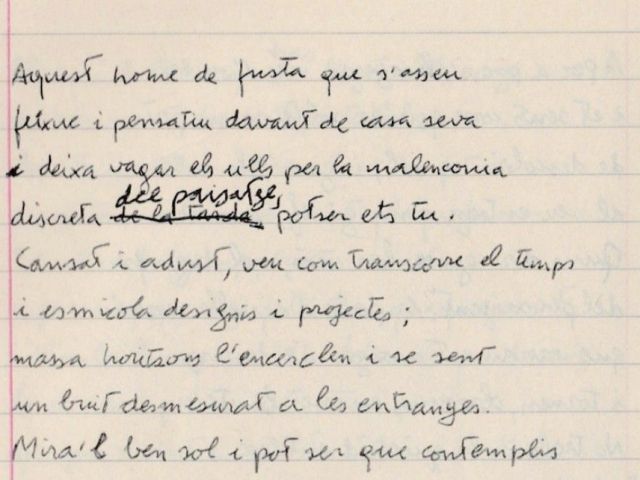 Aquest home de fusta que s'asseu
feixuc i pensatiu davant de casa seva
i deixa vagar els ulls per la malenconia
del paisatge,
discreta de la tarda potser ets tu.
Cansat i adust, veu com transcorre el temps
i esmicola designis i projectes;
massa horitzons l'encerclen i se sent
un buit desmesurat a les entranyes.
Mira'l ben sol i pot ser que contemplis